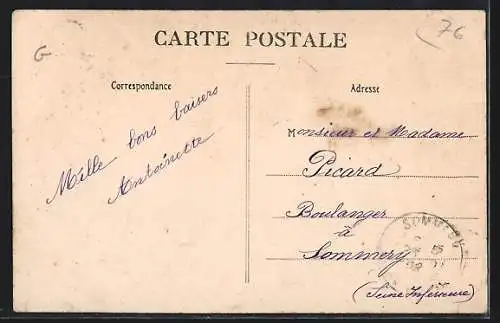 G
76
CARTE POSTALE
Correspondance
Adresse
Mille bons baisers
Antoinette
Monsieur et Madame
Picard
Boulanger
à
Sommery
(Seine Inférieure)